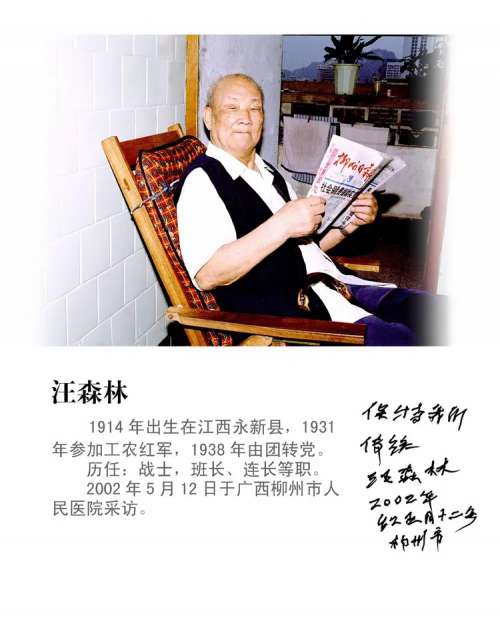 柳州日报
社会
汪森林
1914 年出生在江西永新县，1931
年参加工农红军，1938 年由团转党。
历任：战士，班长、连长等职。
2002 年 5 月 12 日于广西柳州市人
民医院采访。
保持我
传统
汪森林
2002年
五月十二号
柳州市